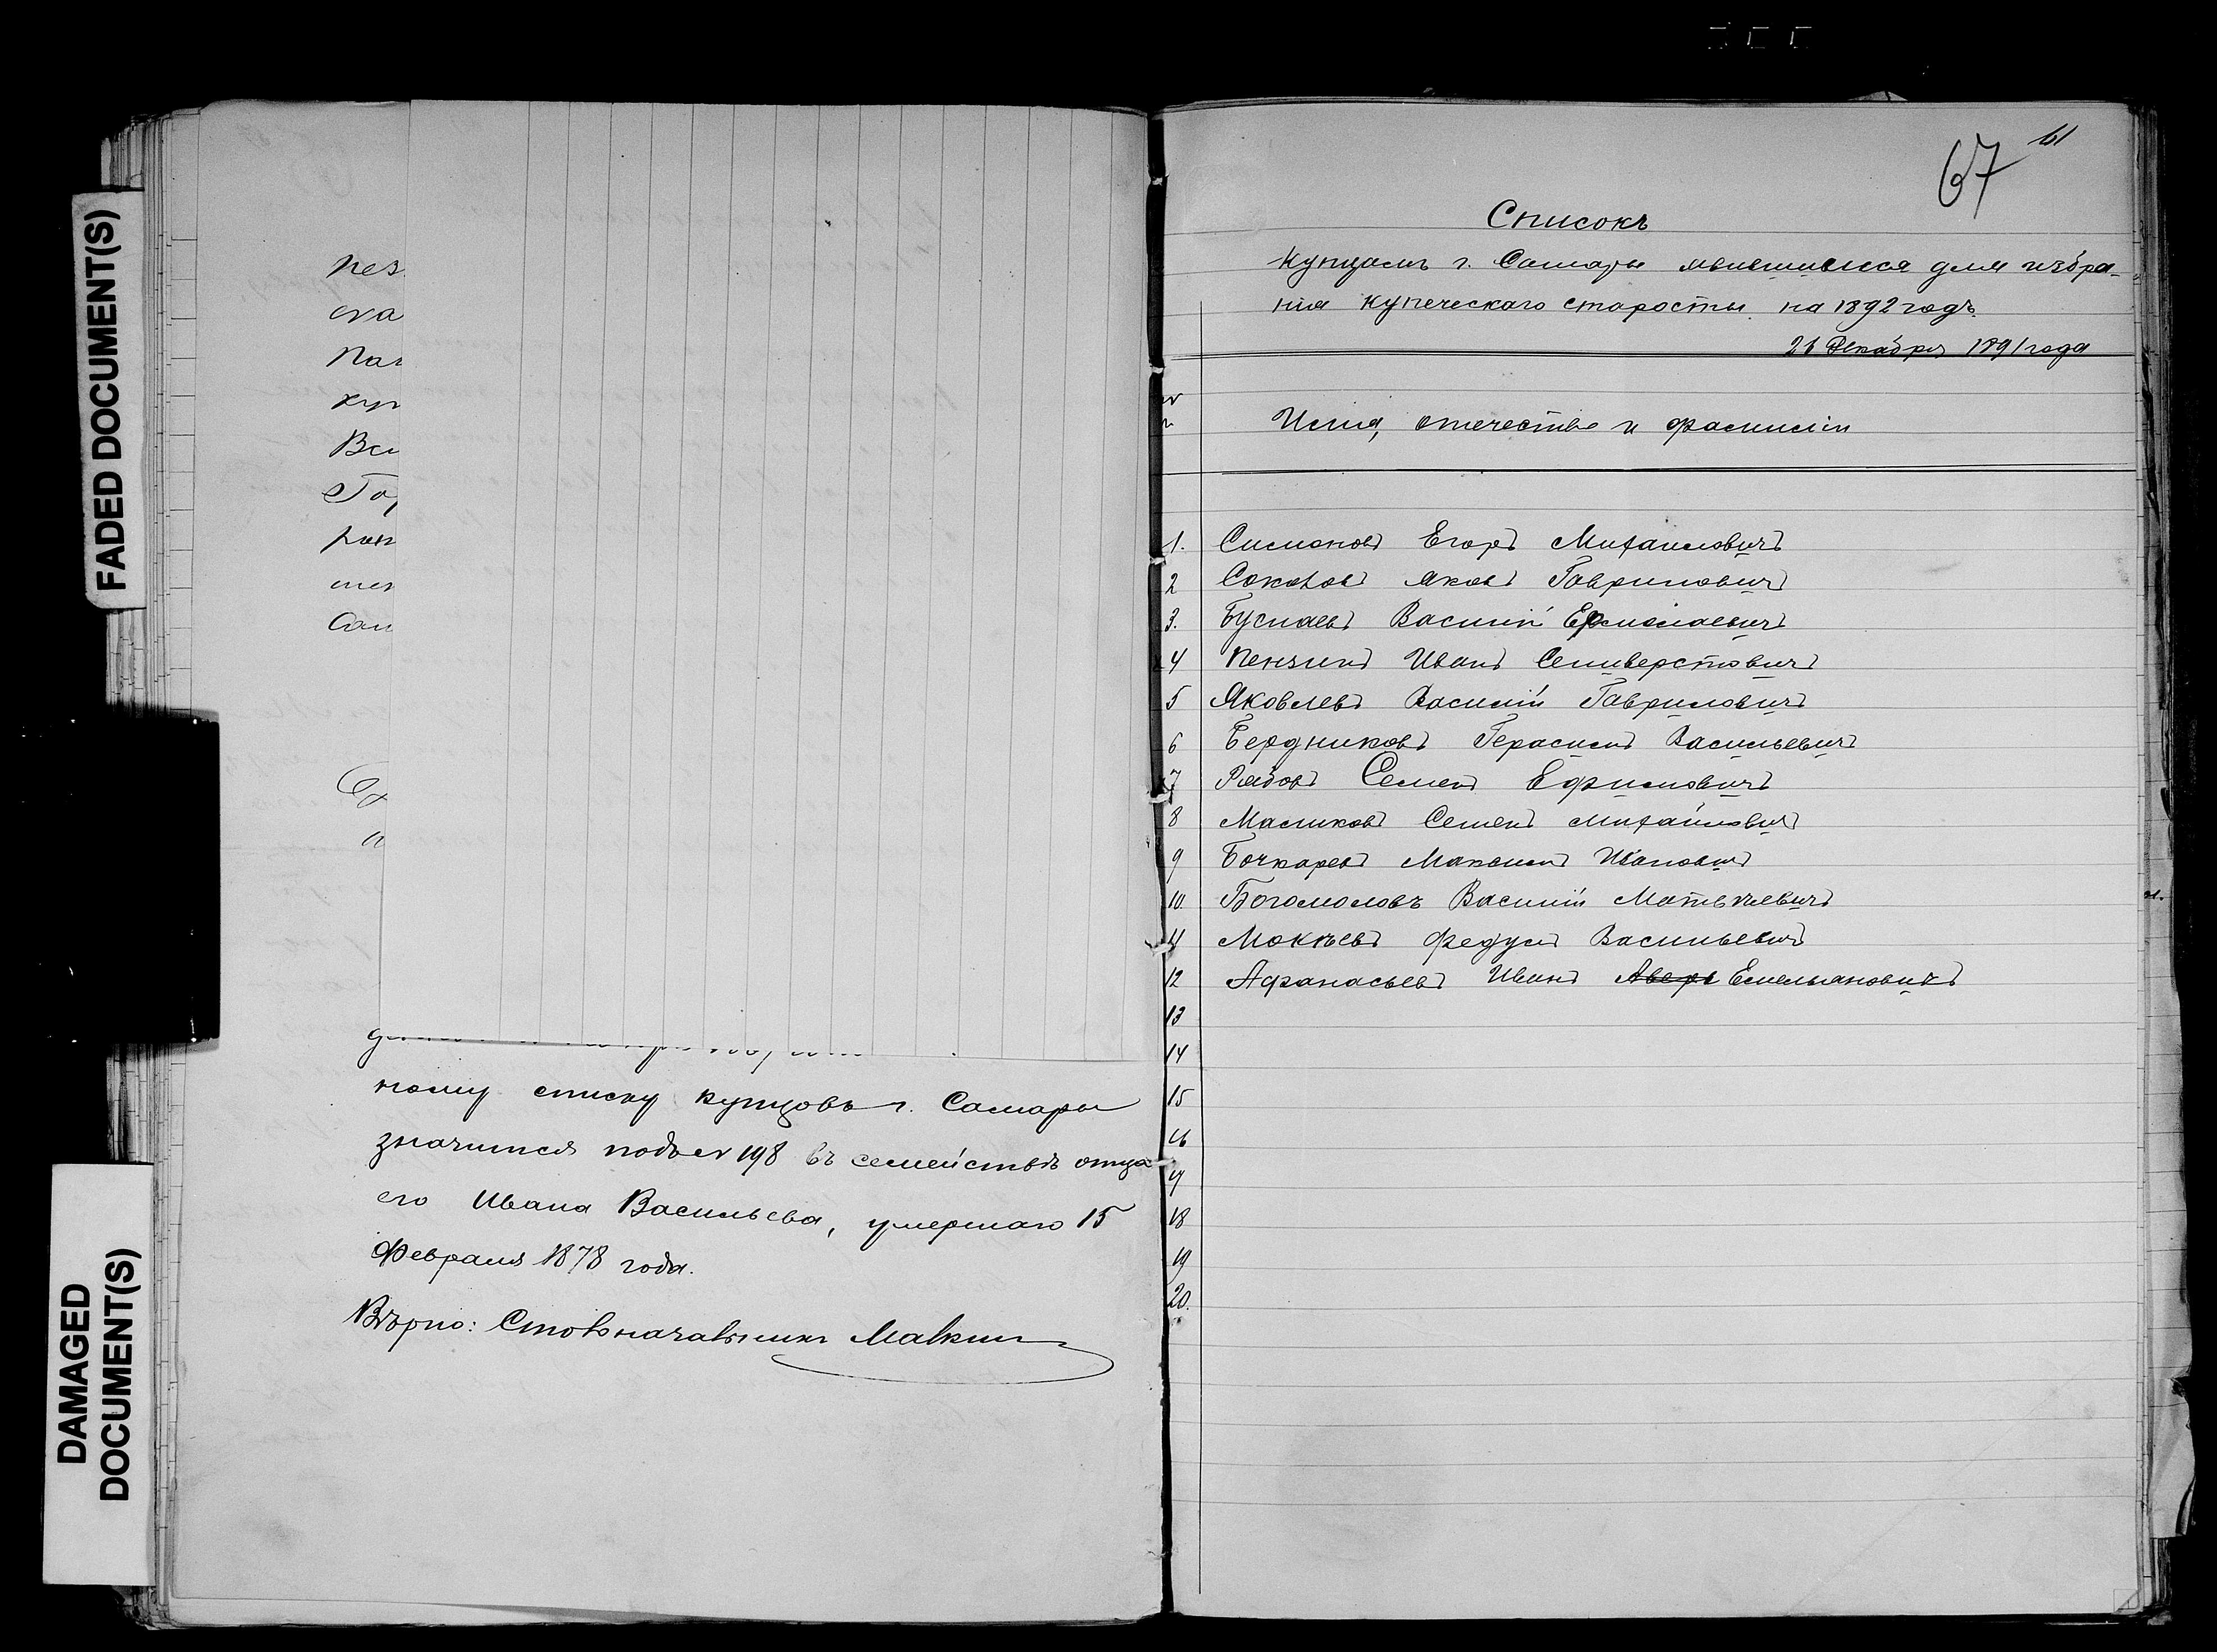 FADED DOCUMENT(S)
DAMAGED
DOCUMENT(S)
ному списку купцовъ г. Самары
значится подъ № 198 въ семействѣ отца
его Ивана Васильева, умершаго 15
Февраля 1878 года.
Вѣрно: Столоначальникъ
67
61
Списокъ
купцамъ г. Самары явившимся для избра-
нія купеческаго старосты на 1892 годъ.
21 Декабря 1891 года
Имя, отечество и фамиліи
1. Симоновъ Егоръ Михаиловичъ
2 Соколовъ Яковъ Гавриловичъ
3. Буслаевъ Василій Ермолаевичъ
4 Пензинъ Иванъ Селиверстовичъ
5 Яковлевъ Василій Гавриловичъ
6 Бердниковъ Герасимъ Васильевичъ
7 Рябовъ Семенъ Ефимовичъ
8 Маликовъ Семенъ Михайловичъ
9 Бочкаревъ Максимъ Ивановичъ
10. Богомоловъ Василій Матвѣевичъ
11 Мокѣевъ Федулъ Васильевичъ
12 Афанасьевъ Иванъ Аверь Емельяновичъ
13
14
15
16
17
18
19
20.